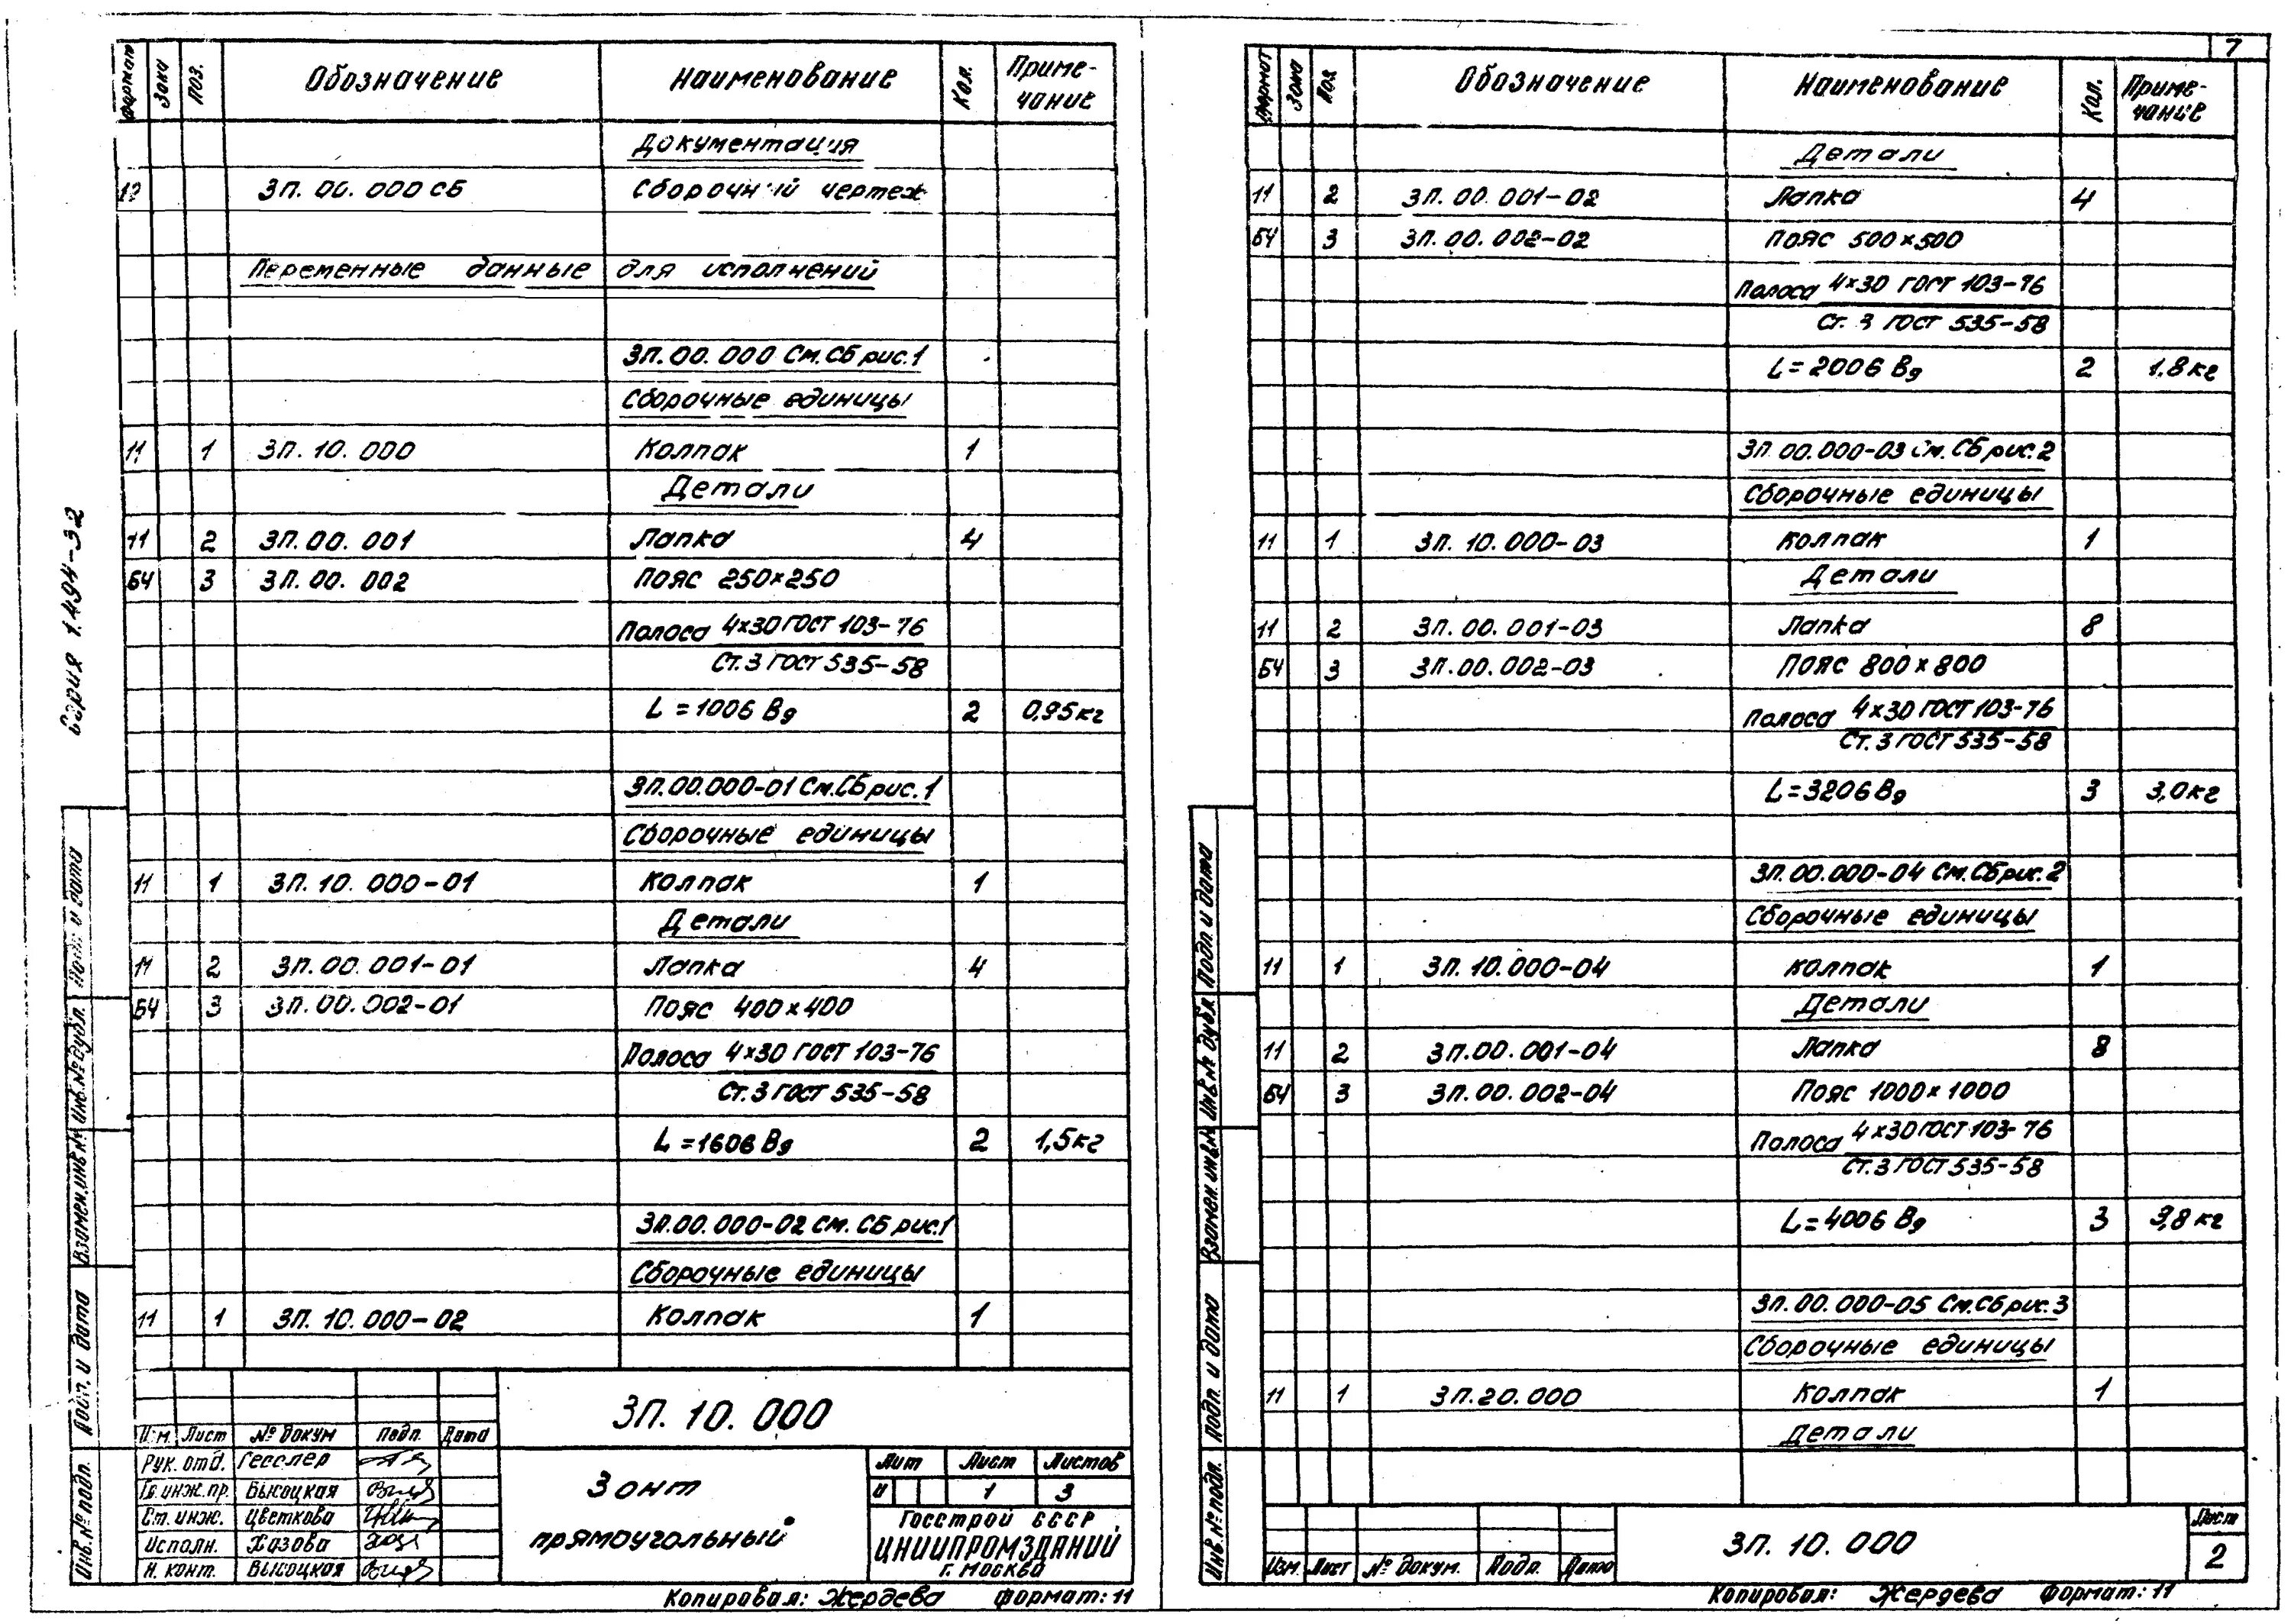 Серия 1.494-32
Формат Зона Поз. Обозначение Наименование Кол. Приме-
чание
Документация
12 ЗП. 00. 000 СБ Сборочный чертеж
Переменные данные для исполнений
ЗП. 00. 000 См. СБ рис. 1
Сборочные единицы
11 1 ЗП. 10. 000 Колпак 1
Детали
11 2 ЗП. 00. 001 Лапка 4
БЧ 3 ЗП. 00. 002 Пояс 250×250
Полоса 4×30 ГОСТ 103-76
Ст. 3 ГОСТ 535-58
L = 1006 Вд 2 0,95 кг
ЗП. 00. 000-01 См. СБ рис. 1
Сборочные единицы
11 1 ЗП. 10. 000-01 Колпак 1
Детали
11 2 ЗП. 00. 001-01 Лапка 4
БЧ 3 ЗП. 00. 002-01 Пояс 400×400
Полоса 4×30 ГОСТ 103-76
Ст. 3 ГОСТ 535-58
L = 1606 Вд 2 1,5 кг
ЗП. 00. 000-02 См. СБ рис. 1
Сборочные единицы
11 1 ЗП. 10. 000-02 Колпак 1
Инв. № подл. Подп. и дата Взамен. инв. № Инв. № дубл. Подп. и дата
Изм. Лист № докум Подп. Дата
Рук. отд. Гесслер
Гл. инж. пр. Высоцкая
Ст. инж. Цветкова
Исполн. Хазова
Н. конт. Высоцкая
ЗП. 10. 000
Зонт
прямоугольный
Лит Лист Листов
И 1 3
Госстрой СССР
ЦНИИПРОМЗДАНИЙ
г. Москва
Копировал: Жердева Формат: 11
7
Формат Зона Поз. Обозначение Наименование Кол. Приме-
чание
Детали
11 2 ЗП. 00. 001-02 Лапка 4
БЧ 3 ЗП. 00. 002-02 Пояс 500×500
Полоса 4×30 ГОСТ 103-76
Ст. 3 ГОСТ 535-58
L = 2006 Вд 2 1,8 кг
ЗП. 00. 000-03 См. СБ рис. 2
Сборочные единицы
11 1 ЗП. 10. 000-03 Колпак 1
Детали
11 2 ЗП. 00. 001-03 Лапка 8
БЧ 3 ЗП. 00. 002-03 Пояс 800×800
Полоса 4×30 ГОСТ 103-76
Ст. 3 ГОСТ 535-58
L = 3206 Вд 3 3,0 кг
ЗП. 00. 000-04 См. СБ рис. 2
Сборочные единицы
11 1 ЗП. 10. 000-04 Колпак 1
Детали
11 2 ЗП. 00. 001-04 Лапка 8
БЧ 3 ЗП. 00. 002-04 Пояс 1000×1000
Полоса 4×30 ГОСТ 103-76
Ст. 3 ГОСТ 535-58
L = 4006 Вд 3 3,8 кг
ЗП. 00. 000-05 См. СБ рис. 3
Сборочные единицы
11 1 ЗП. 20. 000 Колпак 1
Детали
Инв. № подл. Подп. и дата Взамен. инв. № Инв. № дубл. Подп. и дата
Изм. Лист № докум. Подп. Дата
ЗП. 10. 000
Лист
2
Копировал: Жердева Формат: 11